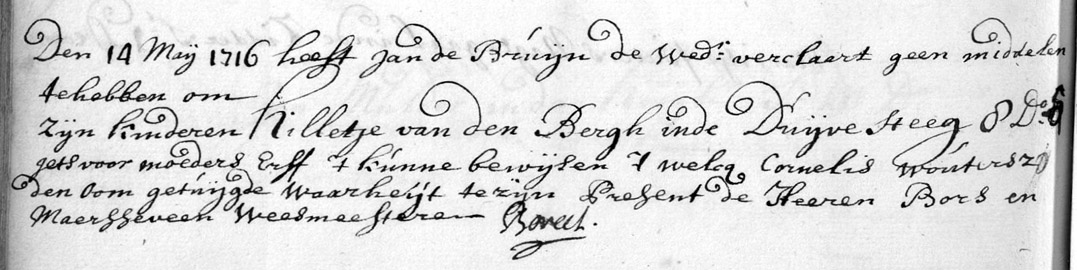 Den 14 Maÿ 1716 heeft Jan de Brúijn de Wedr: verclaart geen middelen
te hebben om
zijn kinderen Hilletje van den Bergh inde Dúijve steeg 8 Do:
iets voor moeders Erff 't kúnne bewijsen 't welcq Cornelis Wouters
den oom getúijgde waarheijt te zijn Present de Heeren Bors en
Maersseveen Weesmeesteren